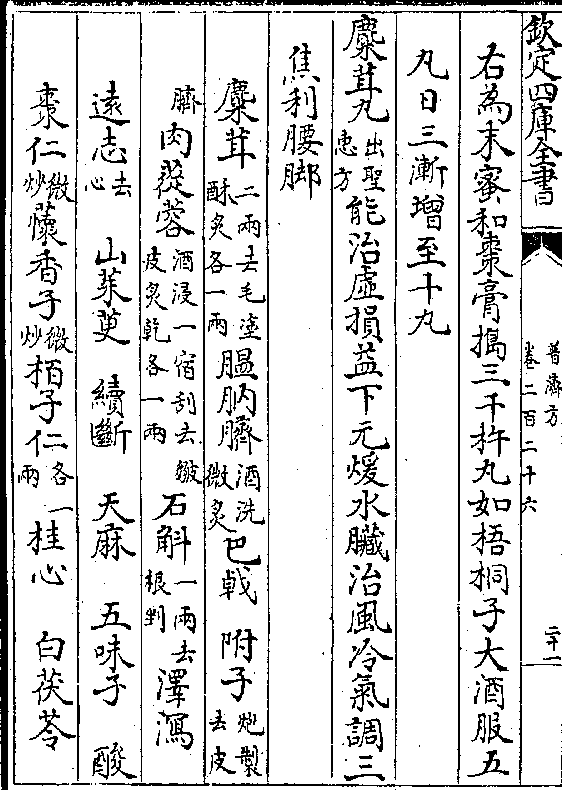 欽定四庫全書
普濟方
卷二百二十六
二十一
右為末蜜和棗膏搗三千杵丸如梧桐子大酒服五
丸日三漸增至十丸
麋茸丸出聖惠方能治虛損益下元煖水臟治風冷氣調三
焦利腰脚
麋茸二兩去毛塗酥炙各一兩膃肭臍酒洗微炙巴戟 附子炮製去皮
臍肉蓯蓉酒浸一宿刮去皴皮炙乾各一兩石斛一兩去根剉澤瀉
遠志去心 山茱萸 續斷 天麻 五味子 酸
棗仁微炒蘹香子微炒栢子仁各一兩桂心 白茯苓